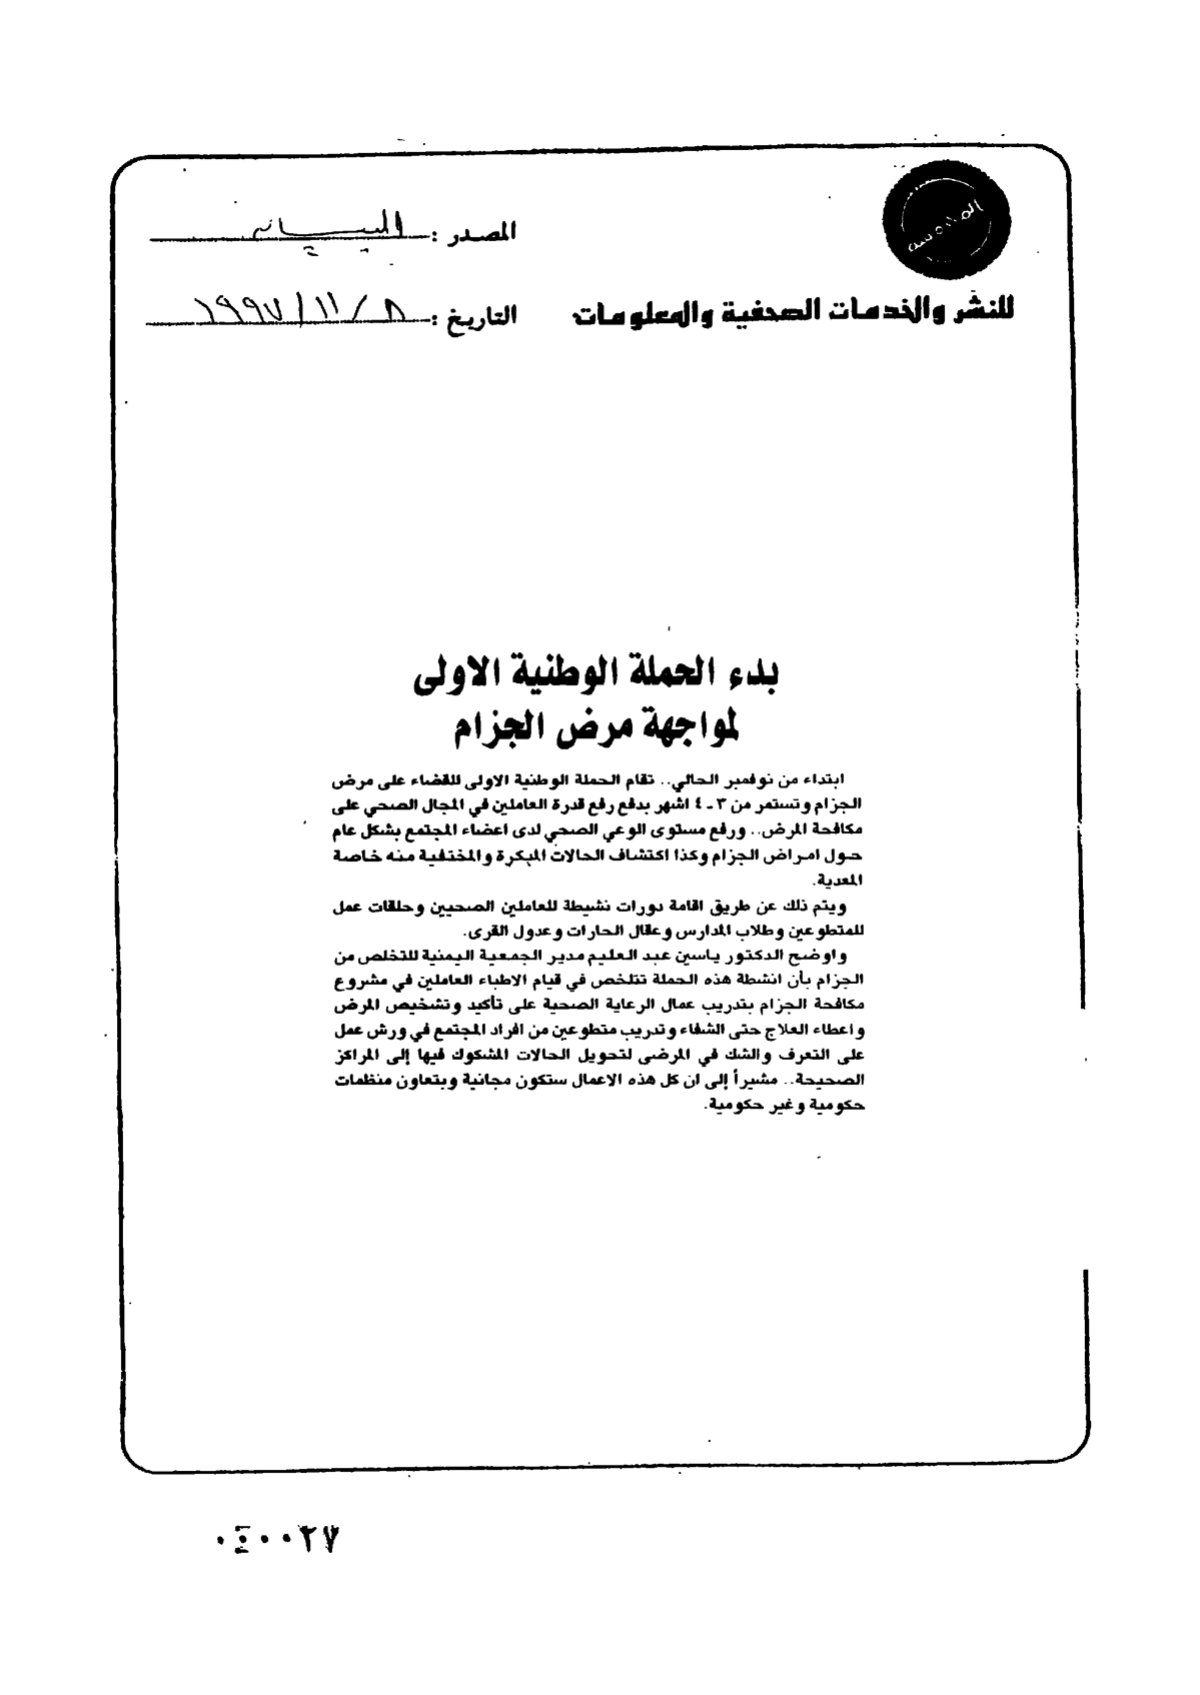 المصدر : البيان
للنشر والخدمات الصحفية والمعلومات
التاريخ : ٨ / ١١ / ١٩٩٧
بدء الحملة الوطنية الاولى
لمواجهة مرض الجزام
ابتداء من نوفمبر الحالي.. تقام الحملة الوطنية الاولى للقضاء على مرض
الجزام وتستمر من ٣ ـ ٤ اشهر بدفع رفع قدرة العاملين في المجال الصحي على
مكافحة المرض.. ورفع مستوى الوعي الصحي لدى اعضاء المجتمع بشكل عام
حول امراض الجزام وكذا اكتشاف الحالات المبكرة والمختفية منه خاصة
المعدية.
ويتم ذلك عن طريق اقامة دورات نشيطة للعاملين الصحيين وحلقات عمل
للمتطوعين وطلاب المدارس وعقال الحارات وعدول القرى.
واوضح الدكتور ياسين عبد العليم مدير الجمعية اليمنية للتخلص من
الجزام بأن انشطة هذه الحملة تتلخص في قيام الاطباء العاملين في مشروع
مكافحة الجزام بتدريب عمال الرعاية الصحية على تأكيد وتشخيص المرض
واعطاء العلاج حتى الشفاء وتدريب متطوعين من افراد المجتمع في ورش عمل
على التعرف والشك في المرضى لتحويل الحالات المشكوك فيها إلى المراكز
الصحيحة.. مشيراً إلى ان كل هذه الاعمال ستكون مجانية وبتعاون منظمات
حكومية وغير حكومية.